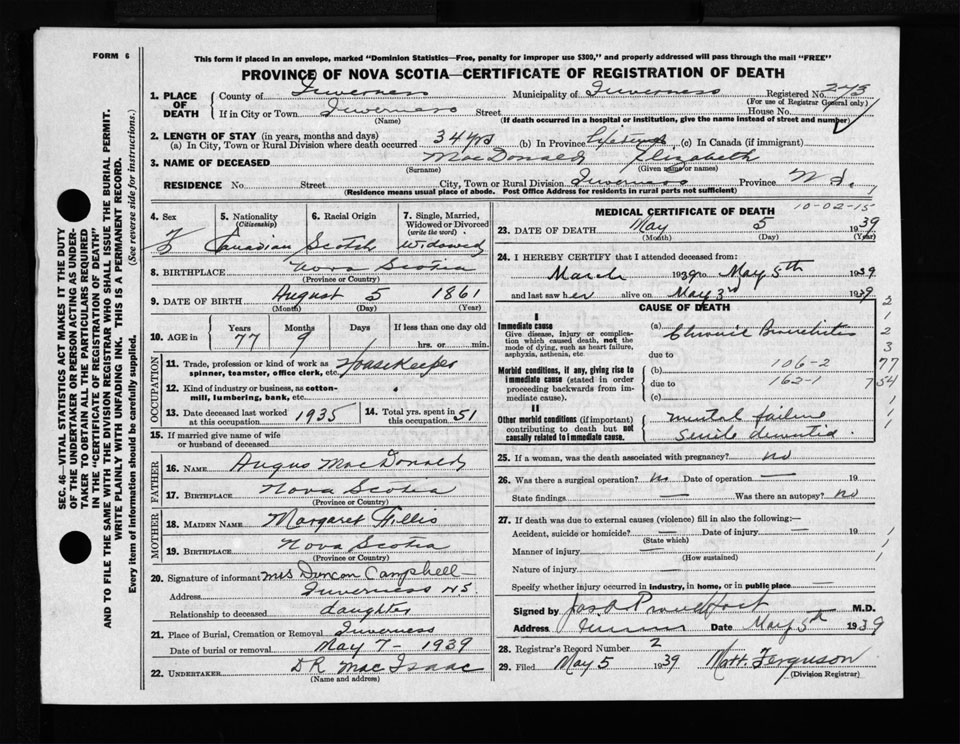 FORM 6
This form if placed in an envelope, marked "Dominion Statistics—Free, penalty for improper use $300," and properly addressed will pass through the mail "FREE"
PROVINCE OF NOVA SCOTIA—CERTIFICATE OF REGISTRATION OF DEATH
1. PLACE OF DEATH
County of Inverness Municipality of Inverness Registered No. 273
(For use of Registrar General only)
If in City or Town Inverness Street House No.
(Name) (If death occurred in a hospital or institution, give the name instead of street and number)
2. LENGTH OF STAY (in years, months and days)
(a) In City, Town or Rural Division where death occurred 34 yrs (b) In Province Lifetime (c) In Canada (if immigrant)
3. NAME OF DECEASED MacDonald Elizabeth
(Surname) (Given name or names)
RESIDENCE No. Street City, Town or Rural Division Inverness Province N.S.
(Residence means usual place of abode. Post Office Address for residents in rural parts not sufficient)
4. Sex F
5. Nationality (Citizenship) Canadian
6. Racial Origin Scotch
7. Single, Married, Widowed or Divorced (write the word) widowed
8. BIRTHPLACE Nova Scotia
(Province or Country)
9. DATE OF BIRTH August 5 1861
(Month) (Day) (Year)
10. AGE in Years Months Days If less than one day old
77 9 hrs. or min.
OCCUPATION
11. Trade, profession or kind of work as spinner, teamster, office clerk, etc. Housekeeper
12. Kind of industry or business, as cotton-mill, lumbering, bank, etc.
13. Date deceased last worked at this occupation 1935 14. Total yrs. spent in this occupation 51
15. If married give name of wife or husband of deceased
FATHER
16. NAME Angus MacDonald
17. BIRTHPLACE Nova Scotia
(Province or Country)
MOTHER
18. MAIDEN NAME Margaret Gillis
19. BIRTHPLACE Nova Scotia
(Province or Country)
20. Signature of informant Mrs Duncan Campbell
Address Inverness N S
Relationship to deceased daughter
21. Place of Burial, Cremation or Removal Inverness
Date of burial or removal May 7 - 1939
22. UNDERTAKER D R MacIsaac
(Name and address)
MEDICAL CERTIFICATE OF DEATH
10-02-15
23. DATE OF DEATH May 5 1939
(Month) (Day) (Year)
24. I HEREBY CERTIFY that I attended deceased from:
March 1939 to May 5th 1939
and last saw her alive on May 3rd 1939
CAUSE OF DEATH
I
Immediate cause
Give disease, injury or complication which caused death, not the mode of dying, such as heart failure, asphyxia, asthenia, etc.
(a) Chronic Bronchitis
due to
Morbid conditions, if any, giving rise to immediate cause (stated in order proceeding backwards from immediate cause).
(b) 106-2
due to 162-1
(c)
II
Other morbid conditions (if important) contributing to death but not causally related to immediate cause.
mental failure
senile dementia.
2
1
2
3
77
754
1
1
1
25. If a woman, was the death associated with pregnancy? no
26. Was there a surgical operation? No Date of operation — 19
State findings — Was there an autopsy? no
27. If death was due to external causes (violence) fill in also the following:—
Accident, suicide or homicide? — Date of injury — 19
(State which)
Manner of injury —
(How sustained)
Nature of injury —
Specify whether injury occurred in industry, in home, or in public place —
Signed by Jas A Proudfoot M.D.
Address Date May 5th 1939
28. Registrar's Record Number 2
29. Filed May 5 1939 Matt. Ferguson
(Division Registrar)
SEC. 46—VITAL STATISTICS ACT MAKES IT THE DUTY
OF THE UNDERTAKER OR PERSON ACTING AS UNDER-
TAKER TO OBTAIN ALL THE PARTICULARS REQUIRED
IN THE "CERTIFICATE OF REGISTRATION OF DEATH"
AND TO FILE THE SAME WITH THE DIVISION REGISTRAR WHO SHALL ISSUE THE BURIAL PERMIT.
WRITE PLAINLY WITH UNFADING INK. THIS IS A PERMANENT RECORD.
Every item of information should be carefully supplied. (See reverse side for instructions.)